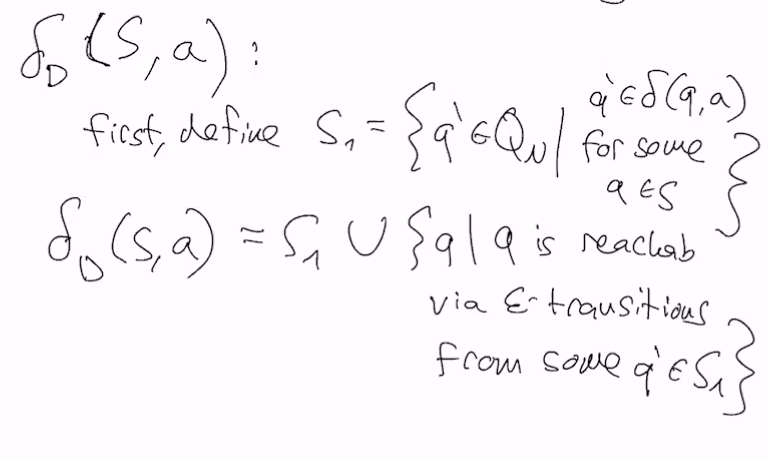 δ_D(S,a):
q' ∈ δ(q,a)
first, define S₁ = {q' ∈ Q_N | for some
q ∈ S }
δ_D(S,a) = S₁ ∪ {q | q is reachab
via ε-transitions
from some q' ∈ S₁}